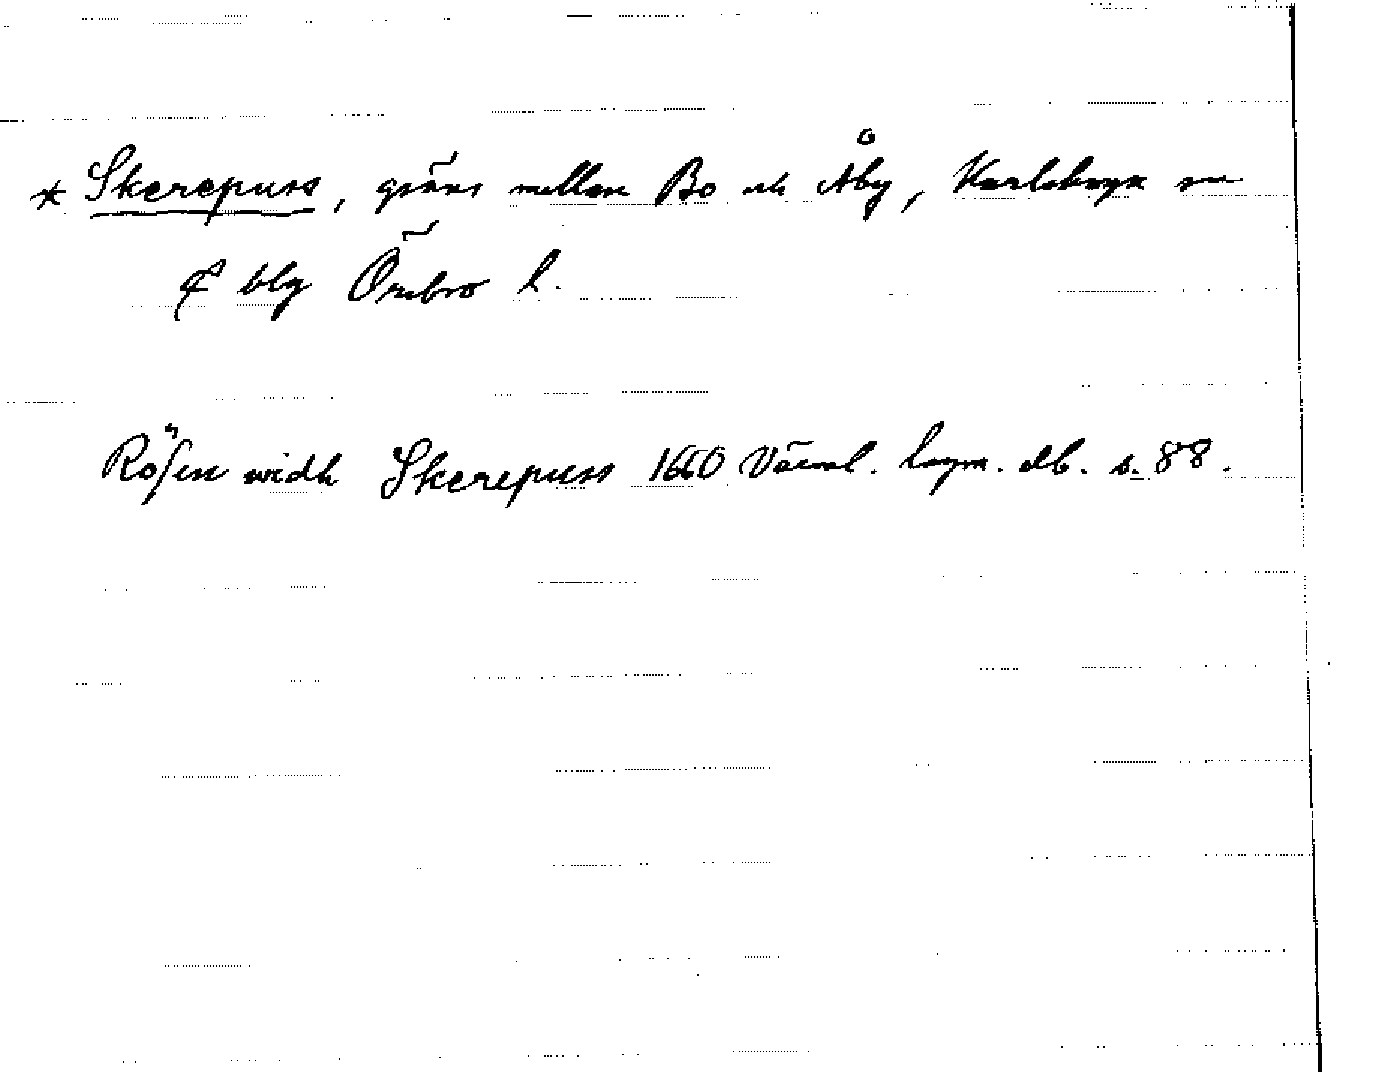 * Skerepuss, gräns mellan Bo och Åby, Karlskoga sn
blg Örebro l.
Rösen widh Skerepuss 1660 Värml. lagm. db. s. 88.